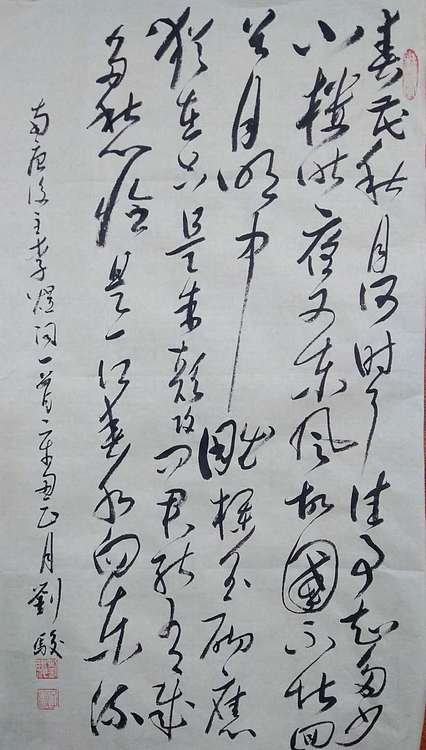 春花秋月何時了往事知多少
小樓昨夜又東風故國不堪回
首月明中雕欄玉砌應
猶在只是朱顏改问君能有幾
多愁恰是一江春水向東流
南唐後主李煜詞一首辛丑正月劉駿